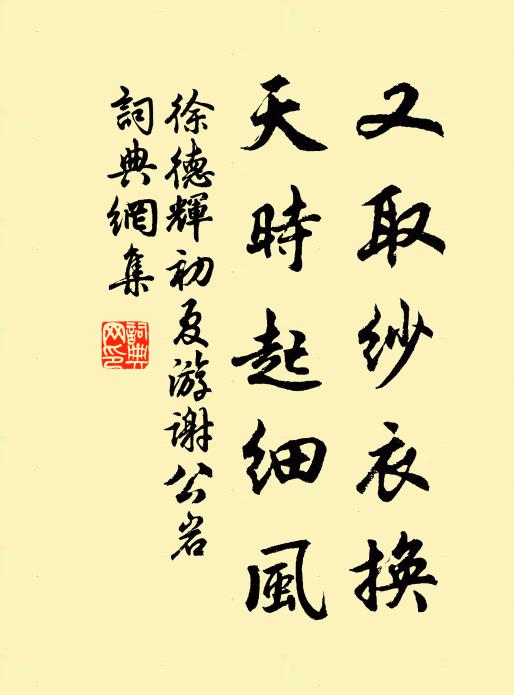 又取纱衣換
天時起細風
徐德輝初夏游謝公岩
詞典網集
詞典
网印